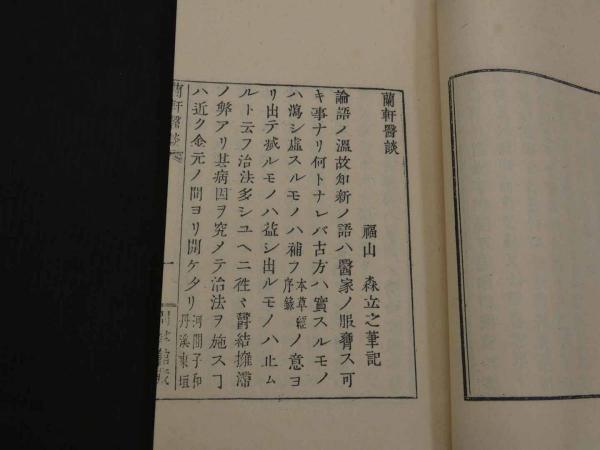 蘭軒醫談
福山 森立之筆記
論語ノ溫故知新ノ語ハ醫家ノ服膺ス可
キ事ナリ何トナレバ古方ハ實スルモノ
ハ瀉シ虛スルモノハ補フ本草經序錄ノ意ヨ
リ出テ减ルモノハ益シ出ルモノハ止ム
ルト云フ治法多シユヘニ徃〻鬱結擁滯
ノ弊アリ其病因ヲ究メテ治法ヲ施スヿ
ハ近ク金元ノ間ヨリ開ケタリ河間子和丹溪東垣
蘭軒醫談
一